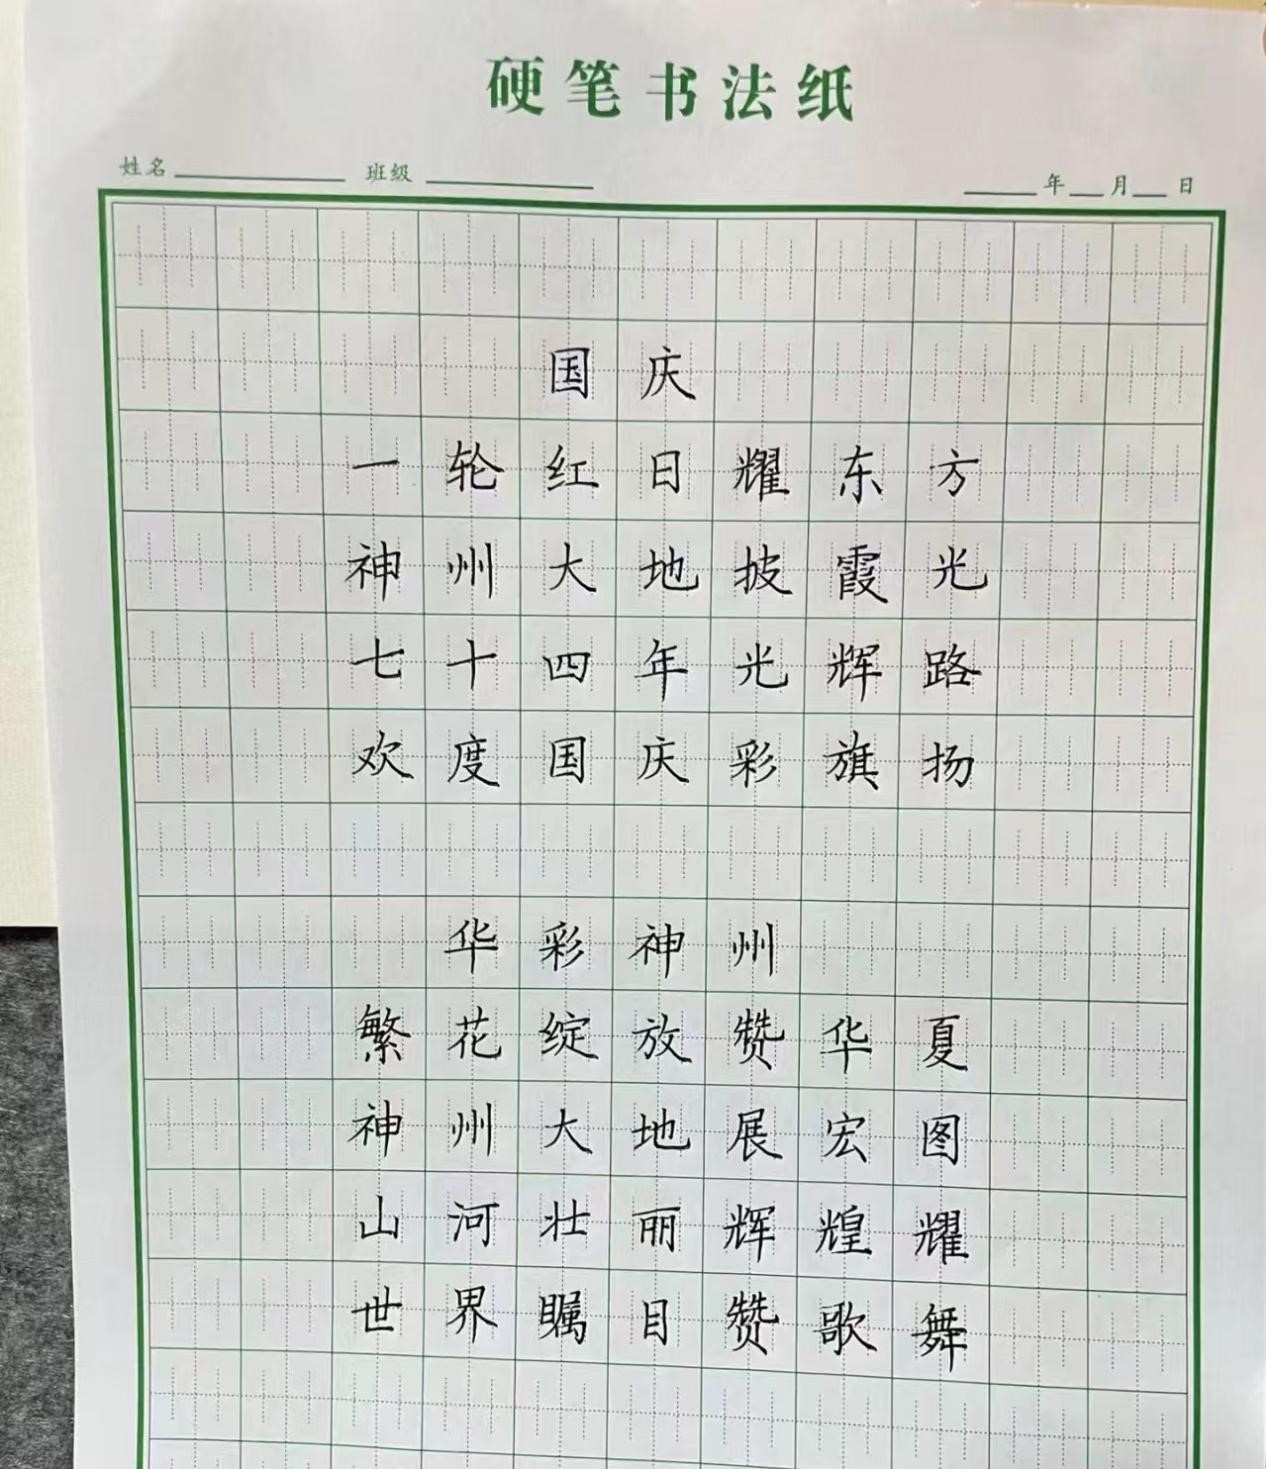 硬笔书法纸
姓名 班级 年 月 日
国庆
一轮红日耀东方
神州大地披霞光
七十四年光辉路
欢度国庆彩旗扬
华彩神州
繁花绽放赞华夏
神州大地展宏图
山河壮丽辉煌耀
世界瞩目赞歌舞